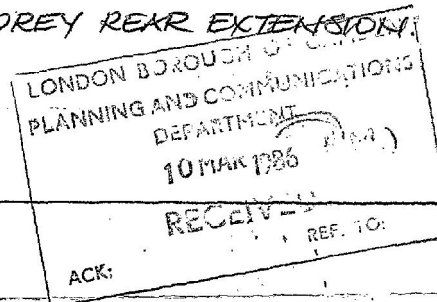 OREY REAR EXTENSION.
LONDON BOROUGH OF
PLANNING AND COMMUNICATIONS
DEPARTMENT
10 MAR 1986
RECEIVED
REF. TO:
ACK: